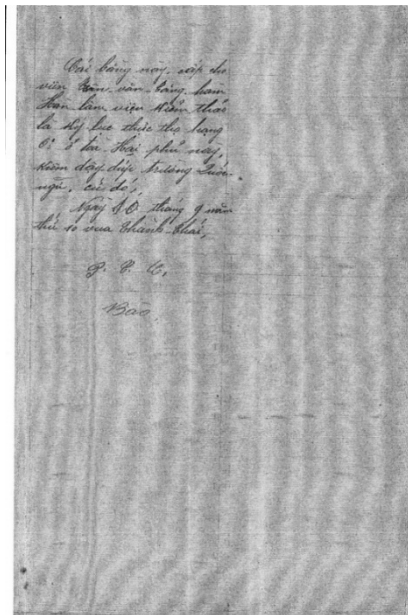 Cái bằng này, cấp cho
viên Trần văn Hằng hàm
Hàn lâm viện Kiểm thảo
là Ký lục thực thọ hạng
6e ở lại Hải phủ này,
Kiêm dạy dịp trường Quốc-
ngữ, cứ đó,
Ngày 18 tháng 9 năm
thứ 10 vua Thành-thái,
P. P. C,
Báo.